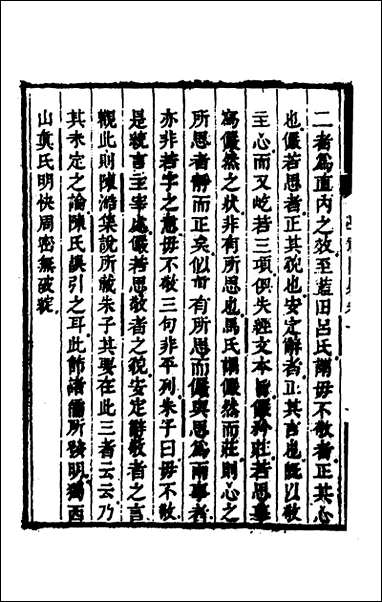 二者爲直內之效至藍田呂氏謂毋不敬者正其心
也儼若思者正其貌也安定辭者正其言也旣以敬
主心而又屹若三項俱失經文本旨儼矜莊若思
寫儼然之狀非有所思也馬氏謂儼然而莊則心之
所思者靜而正矣似有所思而儼與思爲兩事者
亦非若字之意毋不敬三句非平列朱子曰毋不敬
是統言主宰處儼若思敬者之貌安定辭敬者之言
觀此則陳澔集說所載朱子其要在此三者云云乃
其未定之論陳氏誤引之耳此節諸儒所發明獨西
山眞氏明快周密無破綻